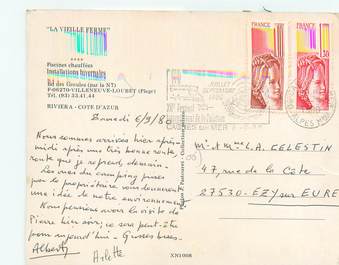 "LA VIEILLE FERME"
Piscines chauffées
Installations hivernales
Bd des Groules (sur la N7)
F-06270 VILLENEUVE-LOUBET (Plage)
Tél. (93) 33.41.44
RIVIERA - COTE D'AZUR
FRANCE
FRANCE
1,30
CAGNES-SUR-MER
Samedi 6/9/80
Nous sommes arrivés hier après-
midi après une très bonne route,
route que je reprend demain.
Les vues du camping prises
par le propriétaire vous donneront
une idée de notre environnement
Nous pensions avoir la visite de
Pierre hier soir; ce sera peut-être
pour aujourd'hui - Grosses bises
Albert
Arlette
Mr et Mme L.A. CELESTIN
47, rue de Coutumel
27530 - EZY sur EURE
XN1008